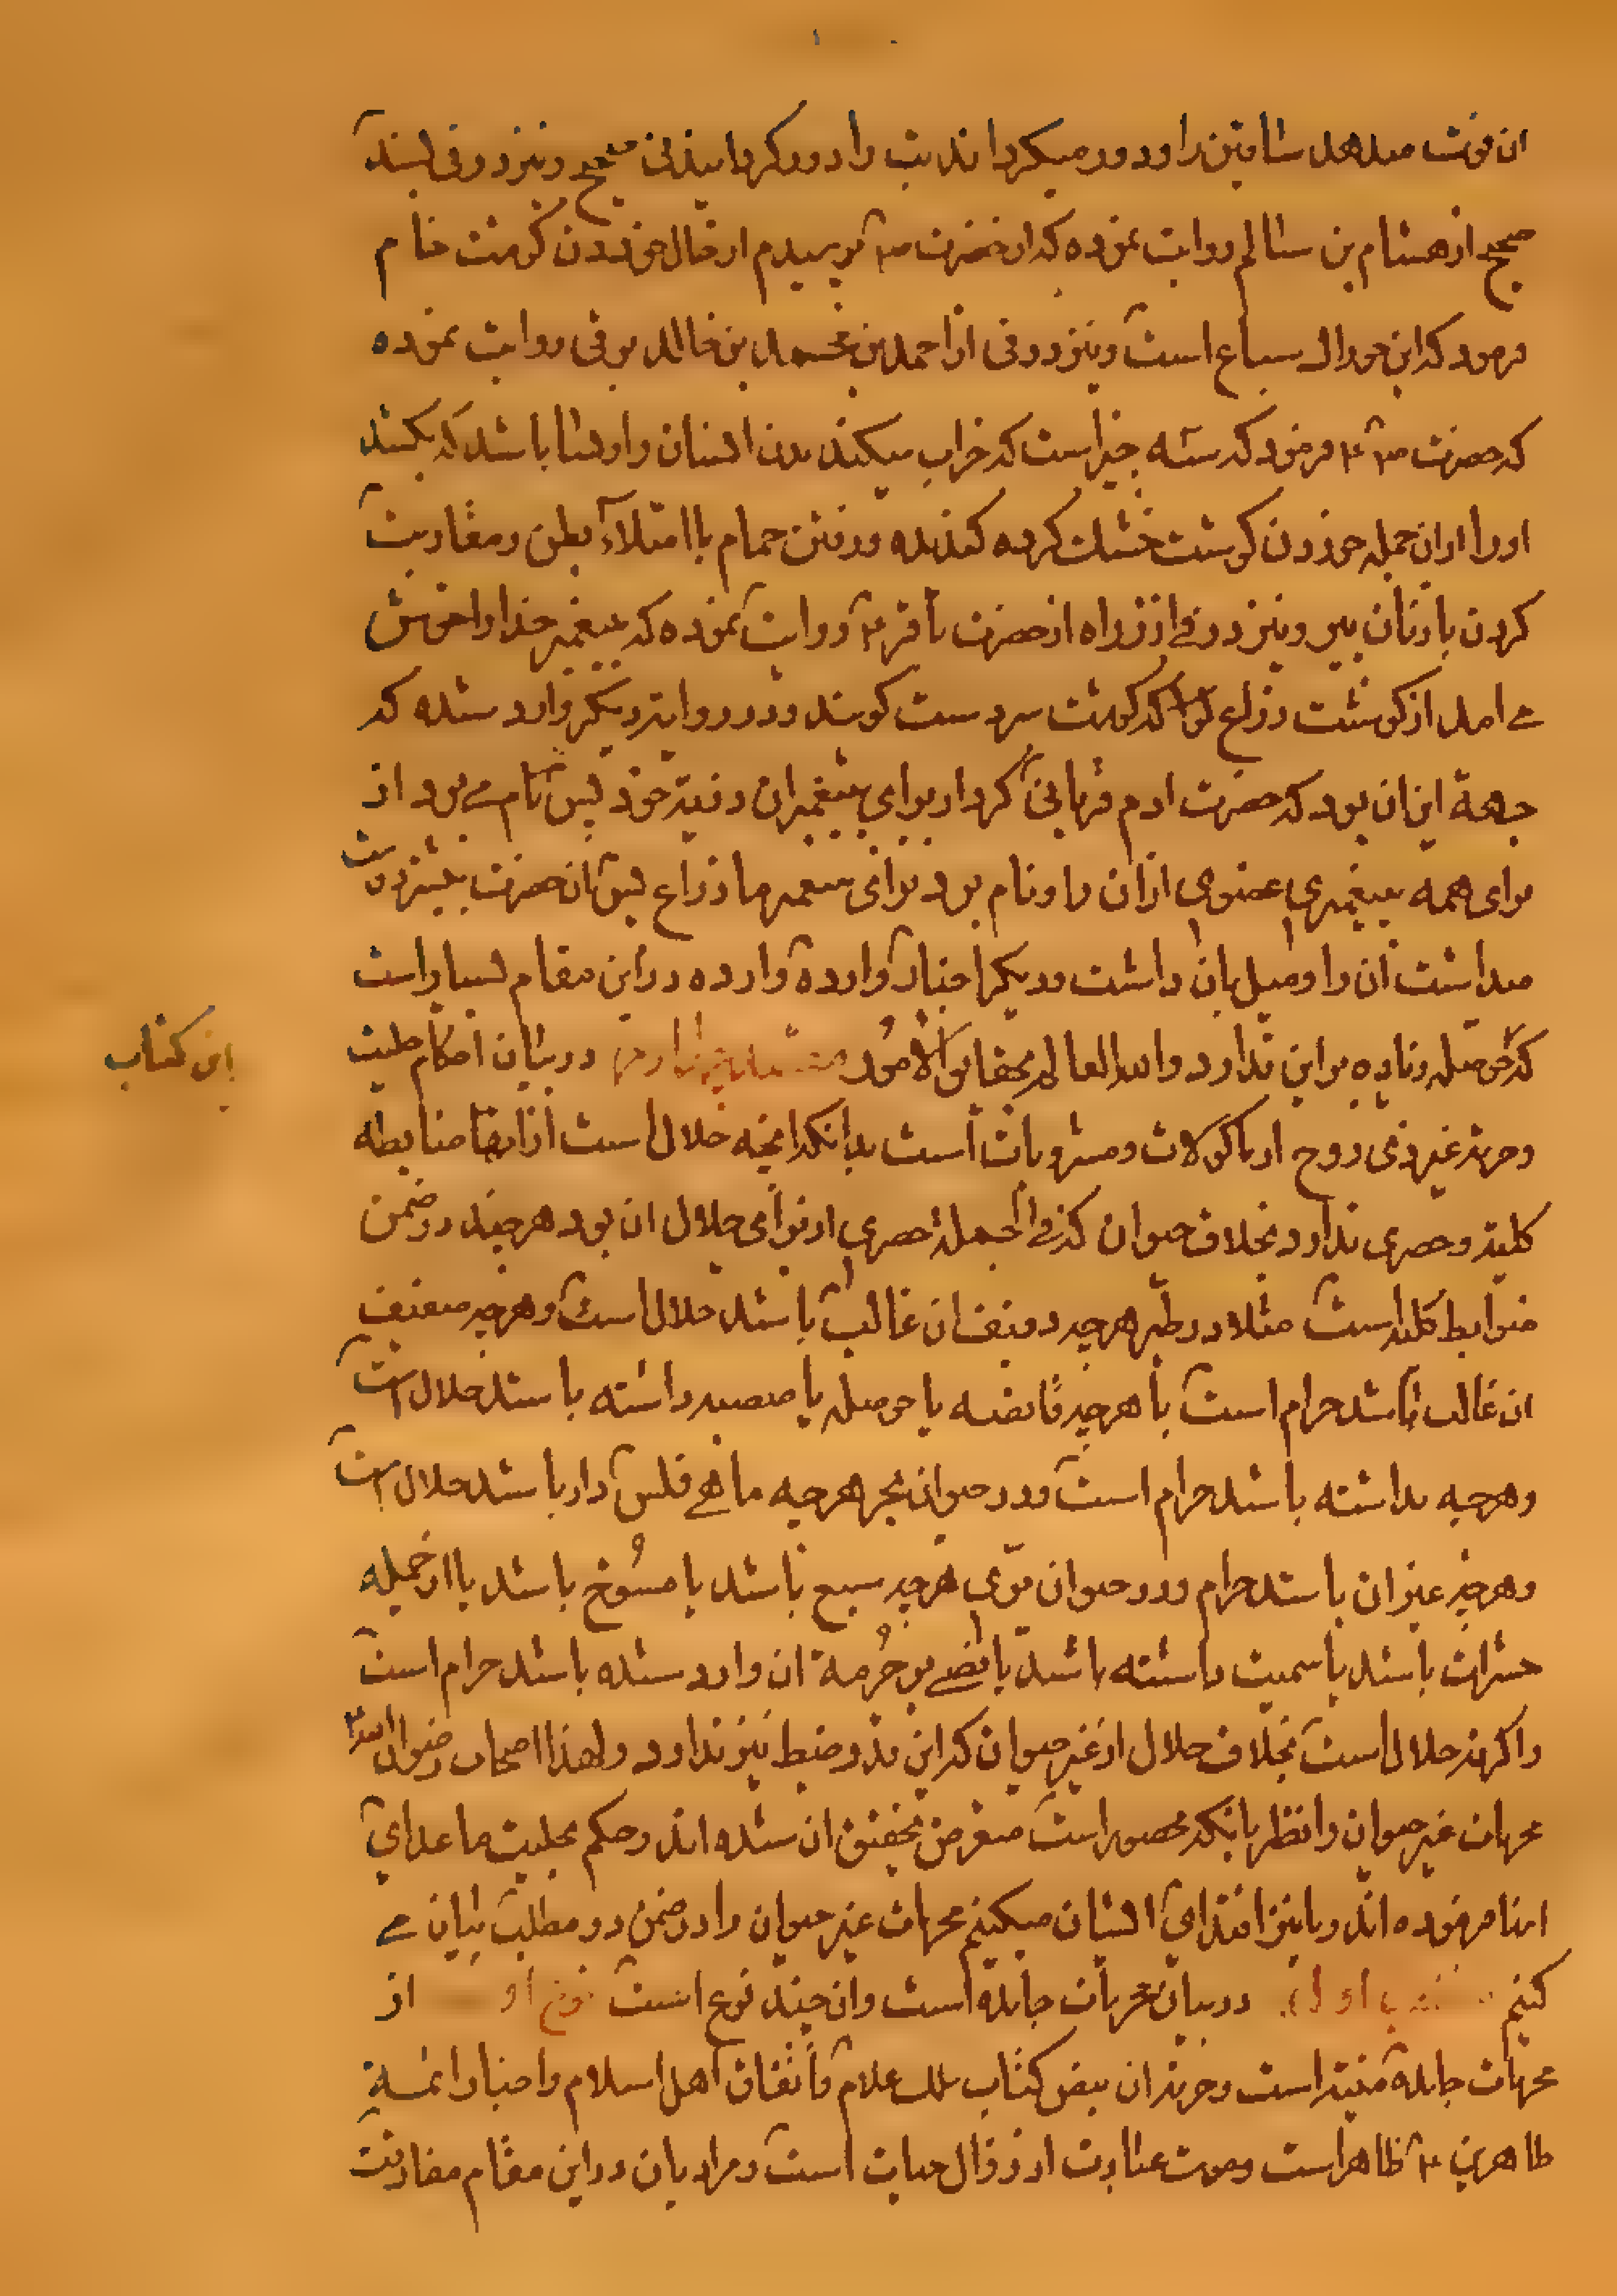 ان قوت میدهد ساقین را و دور میکرداند تب را دور کردانیدنی صحیح و نیز در فی بسند
صحیح از هشام بن سالم روایت نموده که از حضرت ص ۴ پرسیدم از حال خوردن کوشت خام
فرمود که این خوراک سباع است و نیز در فی از احمد بن محمد بن خالد برقی روایت نموده
که حضرت ص ۴ فرمود که سه چیز است که خراب میکند بدن انسان را و بسا باشد که بکشد
او را از ان جمله خوردن کوشت خشک کرده کندیده و رفتن حمام با امتلاء بطن و مقاربت
کردن با زنان پیر و نیز در فی از زراه از حضرت باقر ۴ روایت نموده که پیغمبر خدا را خوش
می امد از کوشت ذراع که کوشت سردست کوسند و در روایة دیکر وارد شده که
جهة این ان بود که حضرت ادم قربانی کرد از برای پیغمبران ذریة خود پس نام می برد از
برای همه پیغمبری عضوی از ان را و نام برد برای پیغمبر ما ذراع پس ان حضرت بیشتر دوست
میداشت ان را و میل بان داشت و دیکر اخبار وارده وارده در این مقام بسیار است
که حوصله زیاده بر این ندارد والله العالم بحقایق الامور در بیان احکام حلیت
این کتاب
و حرمة غیر ذی روح از ماکولات و مشروبات است بدانکه انچه حلال است از اینها ضابطه
کلیة و حصری ندارد بخلاف حیوان که فی الجمله حصری از برای حلال ان بود هر چند در ضمن
ضوابط کلیه است مثلا در طیر هر چه دفیف ان غالب باشد حلال است و هر چه صفیف
ان غالب باشد حرام است یا هر چه قانصه یا حوصله یا صیصیه داشته باشد حلال است
و هر چه نداشته باشد حرام است و در حیوان بحر هر چه ماهی فلس دار باشد حلال است
و هر چه غیر ان باشد حرام و در حیوان بری هر چه سبع باشد یا مسوخ باشد یا از جمله
حشرات باشد یا سمیت داشته باشد یا نصی بر حرمة ان وارد شده باشد حرام است
و اکر نه حلال است بخلاف حلال از غیر حیوان که این قدر ضبط نیز ندارد و لهذا اصحاب رضوان الله
محرمات غیر حیوان را نظر بانکه محصور است متعرض تحقیق ان شده اند و حکم بحلیت ما عدای
اینها فرموده اند و ما نیز اقتدای ایشان میکنیم محرمات غیر حیوان را در ضمن دو مطلب بیان می
کنیم اول در بیان محرمات جامده است و ان چند نوع است نوع از
محرمات جامده میته است و حرمة ان بنص کتاب ملک علام و اتفاق اهل اسلام و اخبار ائمه
طاهرین ۴ ظاهر است و موت عبارت از زوال حیات است و مراد بان در این مقام مفارقت